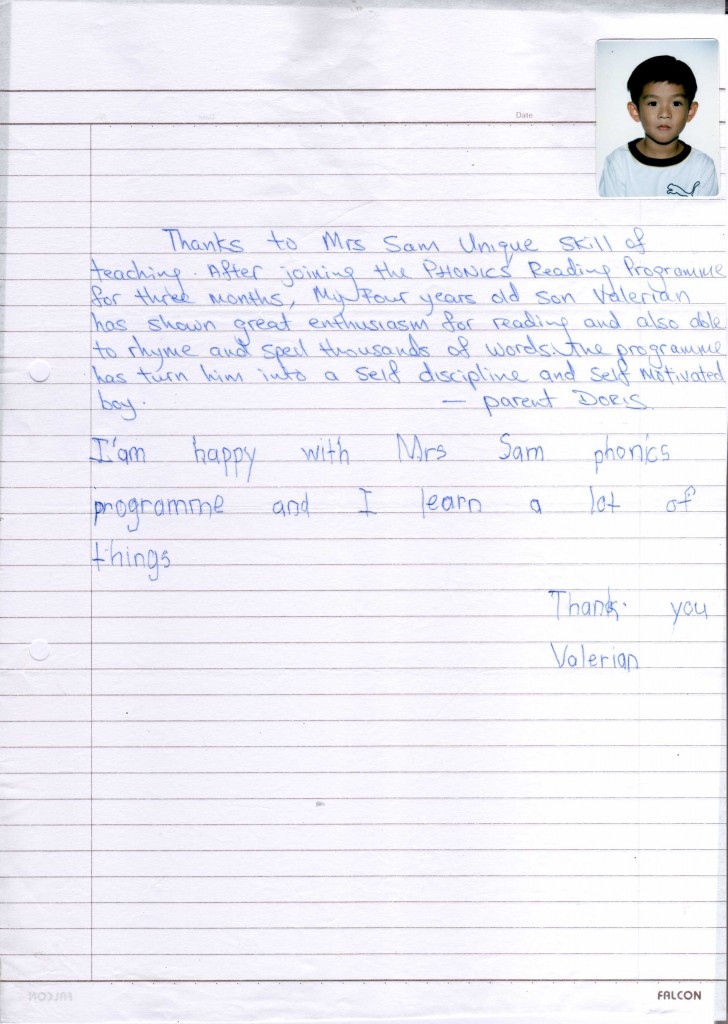 Date
Thanks to Mrs Sam Unique skill of
teaching. After joining the PHONICS Reading Programme
for three months, My Four years old son Valerian
has shown great enthusiasm for reading and also able
to rhyme and spell thousands of words. The programme
has turn him into a self discipline and self motivated
boy. — parent DORIS
I'am happy with Mrs Sam phonics
programme and I learn a lot of
things
Thank you
Valerian
FALCON